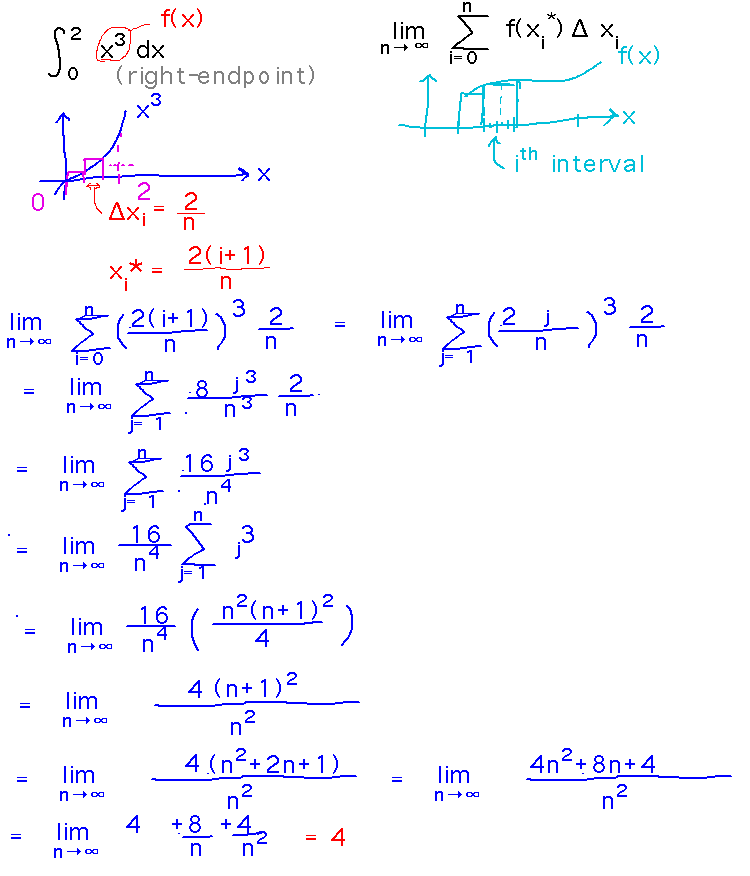 ∫₀² x³ dx f(x)
(right-endpoint)
lim n→∞ Σ i=0 n f(xᵢ*) Δ xᵢ
f(x)
x
iᵗʰ interval
x³
x
0 2
Δxᵢ = 2/n
xᵢ* = 2(i+1)/n
lim n→∞ Σ i=0 n (2(i+1)/n)³ 2/n = lim n→∞ Σ j=1 n (2 j/n)³ 2/n
= lim n→∞ Σ j=1 n 8 j³/n³ 2/n
= lim n→∞ Σ j=1 n 16 j³/n⁴
= lim n→∞ 16/n⁴ Σ j=1 n j³
= lim n→∞ 16/n⁴ (n²(n+1)²/4)
= lim n→∞ 4(n+1)²/n²
= lim n→∞ 4(n²+2n+1)/n² = lim n→∞ 4n²+8n+4/n²
= lim n→∞ 4 +8/n +4/n² = 4